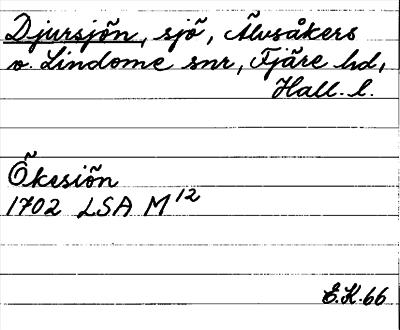 Djursjön, sjö, Älvsåkers
o. Lindome snr, Fjäre hd,
Hall. l.
Ökesiön
1702 LSA M 12
E.K.66